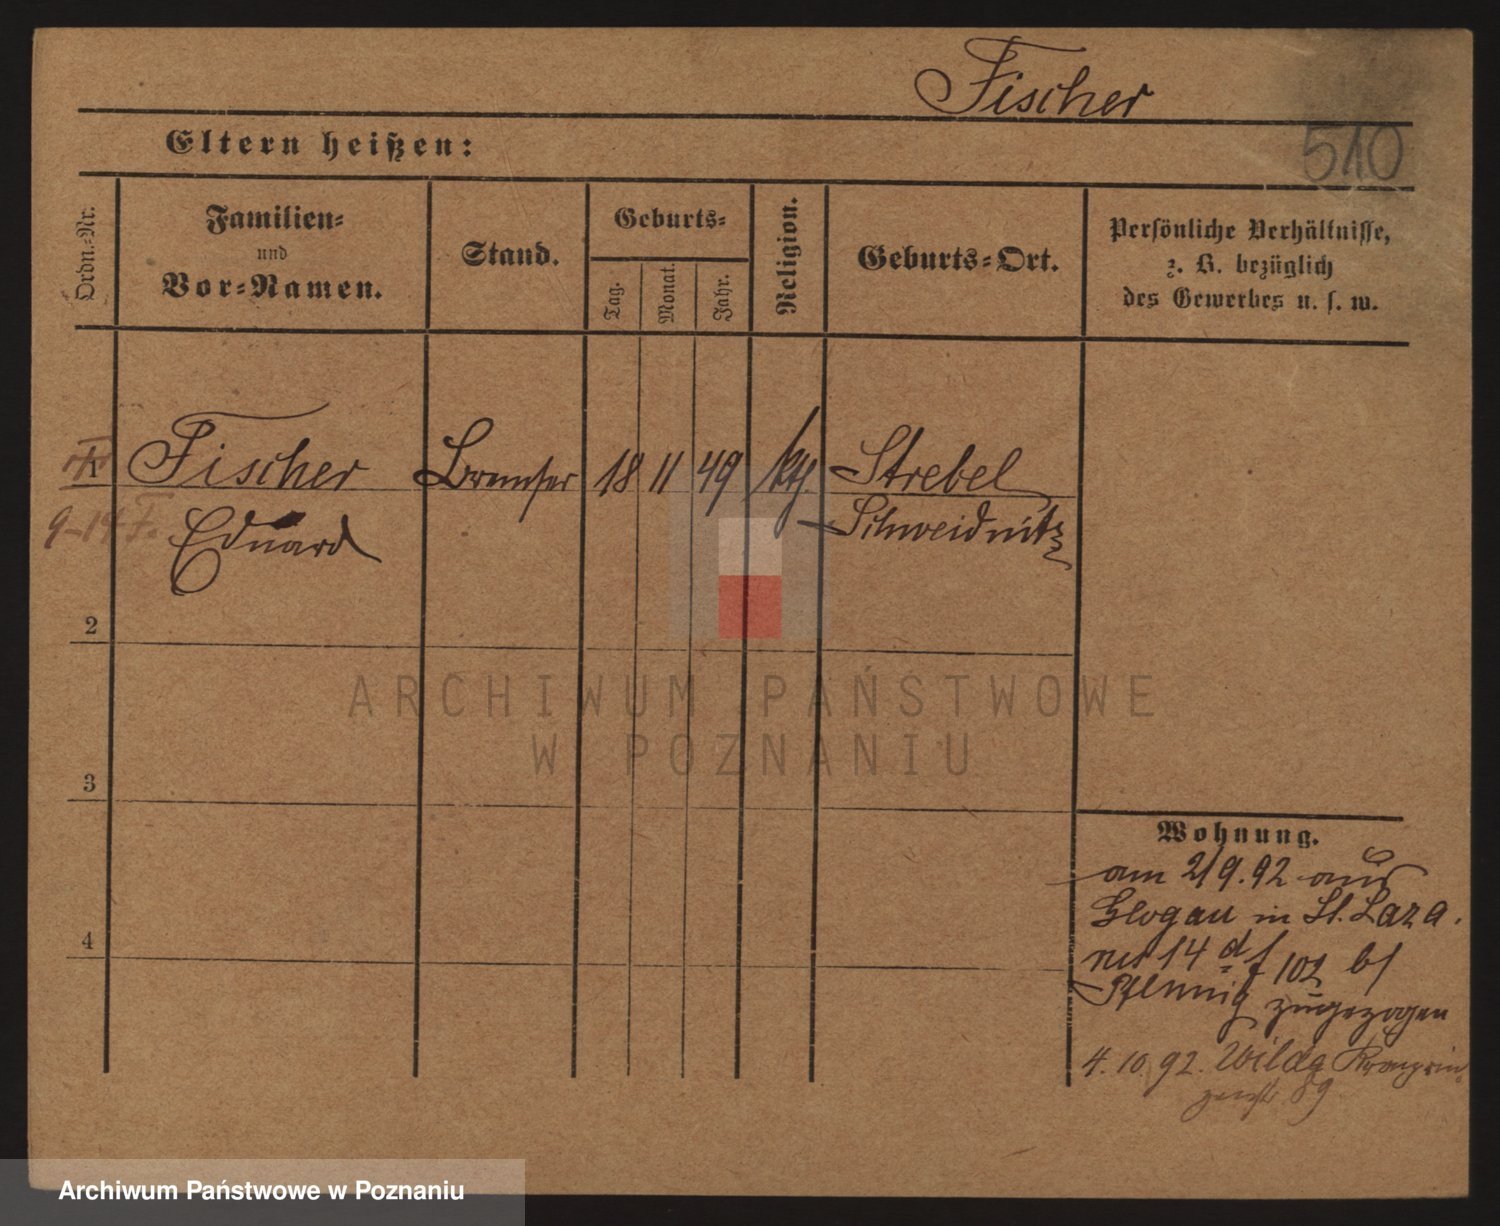 Fischer
510
Eltern heißen:
Ordn.-Nr.
Familien-
und
Vor-Namen.
Stand.
Geburts-
Tag.
Monat.
Jahr.
Religion.
Geburts-Ort.
Persönliche Verhältnisse,
z. B. bezüglich
des Gewerbes u. s. w.
1
Fischer
Bremser
18
11
49
kth.
Strebel
9-14 F.
Eduard
Schweidnitz
2
3
4
ARCHIWUM PAŃSTWOWE
W POZNANIU
Wohnung.
am 2/9.92 aus
Glogau in St. Laza.
rus 14
102 b/
Pfennig zugezogen
4.10.92. Wilda Kronprin
zenstr 89
Archiwum Państwowe w Poznaniu